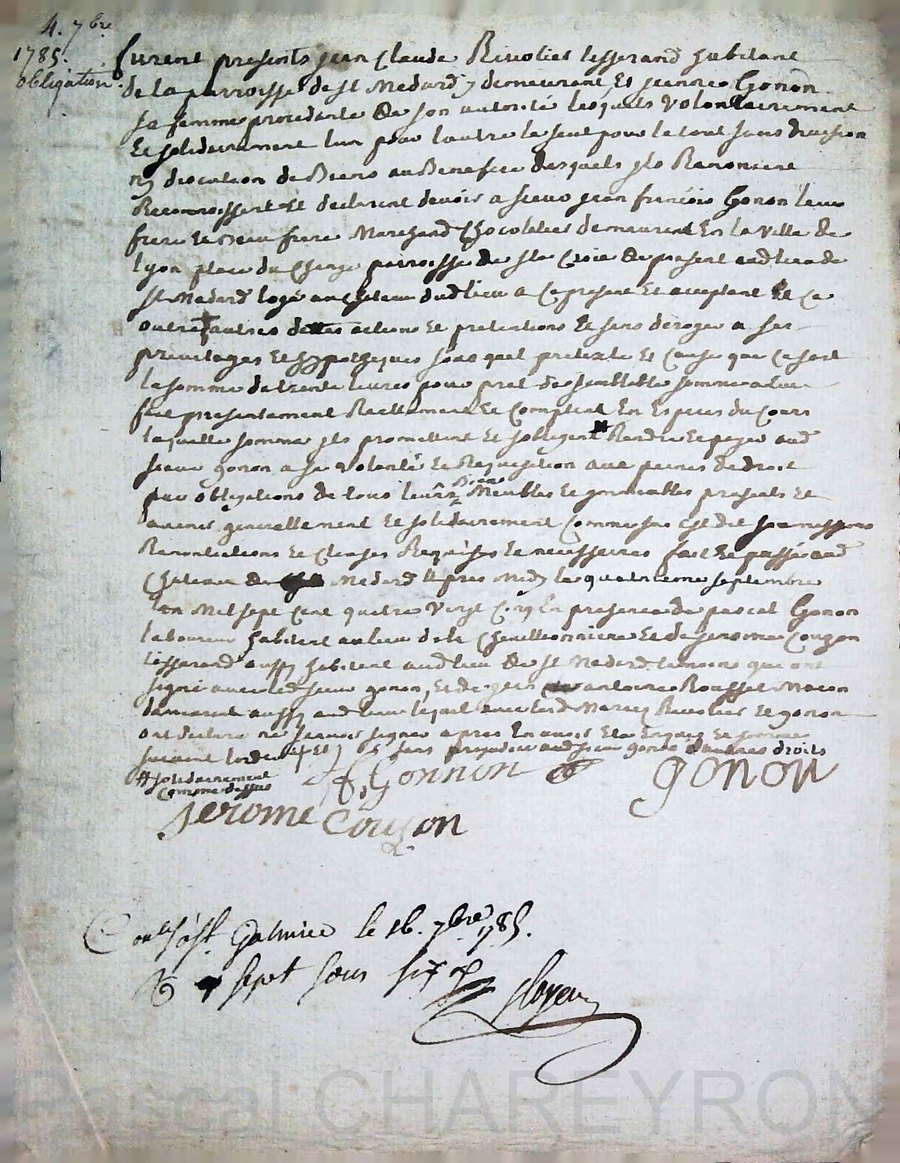 4. 7bre
1785.
obligation
furent presents jean Claude Rivollet tesserand habitant
de la parroisse de st Medard y demeurant, Et jeanne Gonon
sa femme procedante de son autorité lesquels volontairement
Et solidairement l'un pour l'autre le seul pour le tout sans division
ny discution de Biens au Benefice desquels ils Renoncent
Reconnoissent Et declarent devoir a sieur jean françois Gonon leur
frere Et Beau frere Marchand Chocolatier demeurant En la ville de
Lyon place du Change parroisse de Ste Croix de present aud lieu de
st Medard logé au chateau dud lieu a Ce present Et acceptant Et Ce
outre autres dettes actions Et pretentions Et sans deroger a ses
privileges Et hypotheques sous quel pretexte Et Cause que Ce soit
la somme de trente livres pour pret de semblable somme a eux
fait presentement Reellement Et Comptant En Especes du Cours
laquelle somme ils promettent Et sobligent # Rendre Et payer aud
sieur gonon a sa volonté Et Requisition aux peines de droit
par obligations de tous leurs Biens Meubles Et immeubles presents Et
avenir generallement Et solidairement Comme sus est dit
Renontiations Et Clauses Requises Et necessaires fait Et passé aud
Chateau de Medard apres Midy le quatrieme septembre
l'an Mil sept Cent quatre vingt Cinq En presence de pascal Gonon
laboureur habitant au lieu de la Chevillonniere Et de Jerome Couzon
tesserand aussy habitant aud lieu de st Medard temoins qui ont
signé avec led sieur gonon, Et de antoine Rousset Macon
demeurant aussy aud lieu lequel avec lesd Mariez Rivollet Et gonon
ont declaré ne scavoir signer apres En avoir Eté Enquis Et sommé
suivant l'ord Et sans prejudice aud sieur gonon dautres droits
# solidairement
Comme dessus
J f. Gonnon gonon
Jerome Couzon
Conlé à St Galmier le 16. 7bre 1785.
R sept sous six d